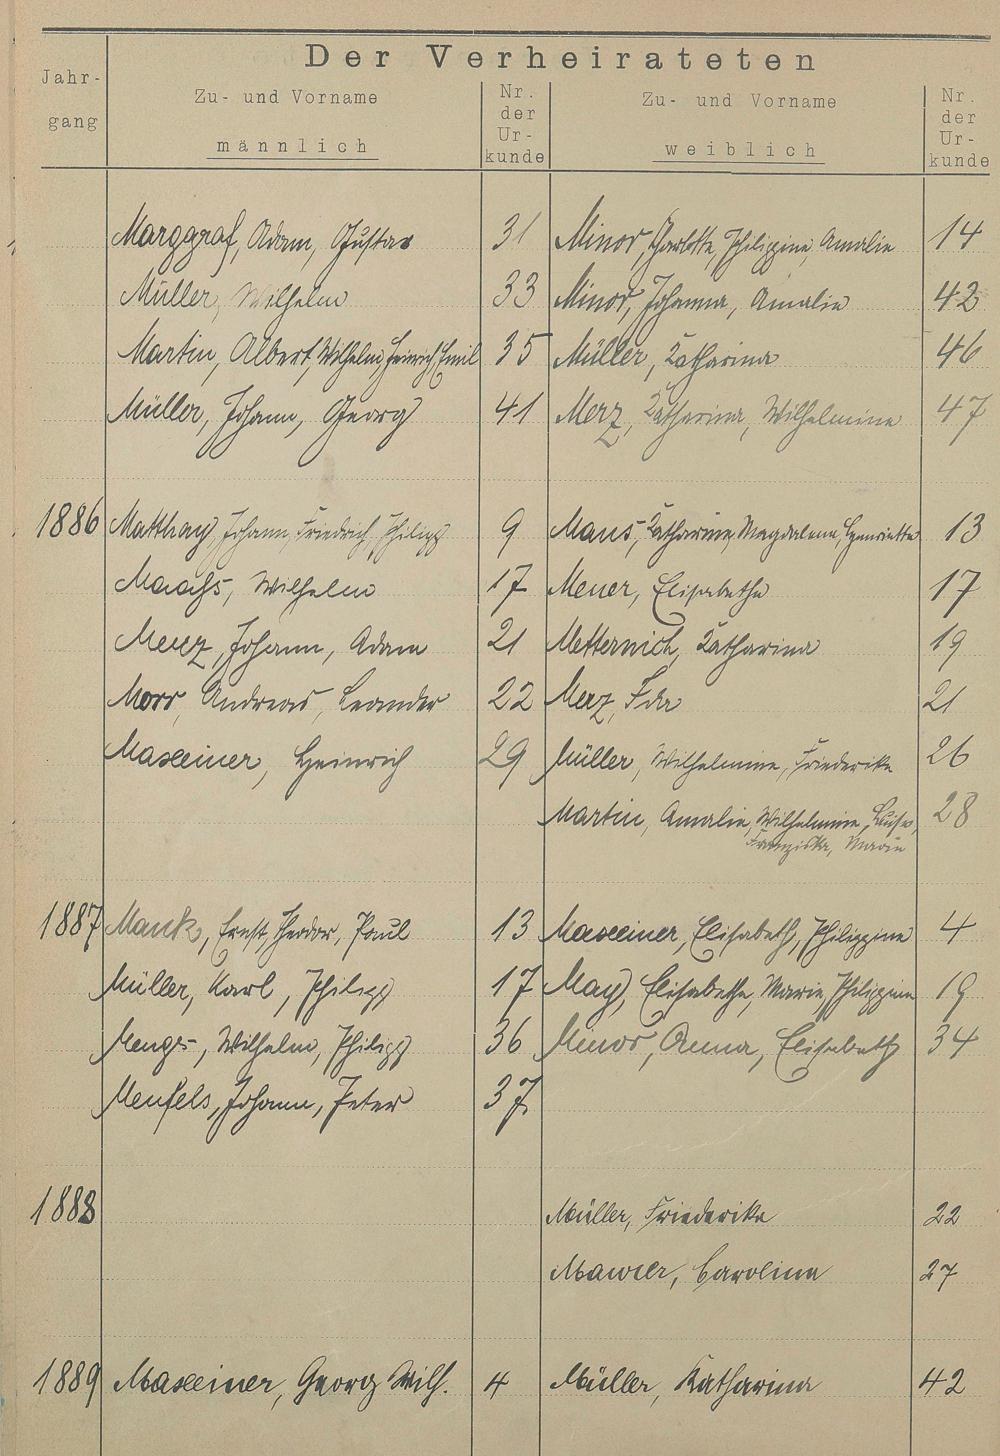 Der Verheirateten
Jahr-
gang
Zu- und Vorname
männlich
Nr.
der
Ur-
kunde
Zu- und Vorname
weiblich
Nr.
der
Ur-
kunde
Marggraf, Adam, Gustav 31 Minor, Charlotte, Philippine, Amalie 14
Müller, Wilhelm 33 Minor, Johanna, Amalie 42
Martin, Albert, Wilhelm, Heinrich, Emil 35 Müller, Katharina 46
Müller, Johann, Georg 41 Merz, Katharina, Wilhelmine 47
1886 Matthay, Johann, Friedrich, Philipp 9 Maus, Katharine, Magdalena, Henriette 13
Maahs, Wilhelm 17 Meuer, Elisabetha 17
Merz, Johann, Adam 21 Metternich, Katharina 19
Morr, Andreas, Leander 22 Merz, Ida 21
Maxeiner, Heinrich 29 Müller, Wilhelmine, Friederike 26
Martin, Amalie, Wilhelmine, Luise, 28
Franziska, Marie
1887 Mank, Ernst, Theodor, Paul 13 Maxeiner, Elisabeth, Philippine 4
Müller, Karl, Philipp 17 May, Elisabetha, Marie, Philippine 19
Menges, Wilhelm, Philipp 36 Minor, Anna, Elisabeth 34
Menfels, Johann, Peter 37
1888 Müller, Friederike 22
Maurer, Carolina 27
1889 Maxeiner, Georg Wilh. 4 Müller, Katharina 42